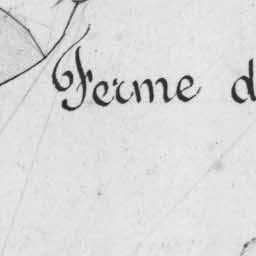 Ferme d